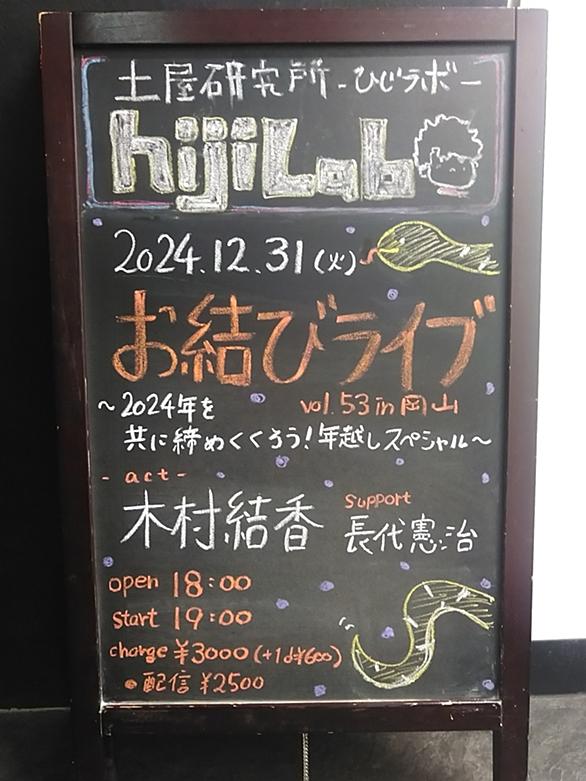 土屋研究所-ひじラボ-
hijiLab
2024.12.31(火)
お結びライブ
vol.53 in 岡山
～2024年を
共に締めくくろう!年越しスペシャル～
- act -
木村結香 support 長代憲治
open 18:00
start 19:00
charge ¥3000(+1d¥600)
●配信 ¥2500